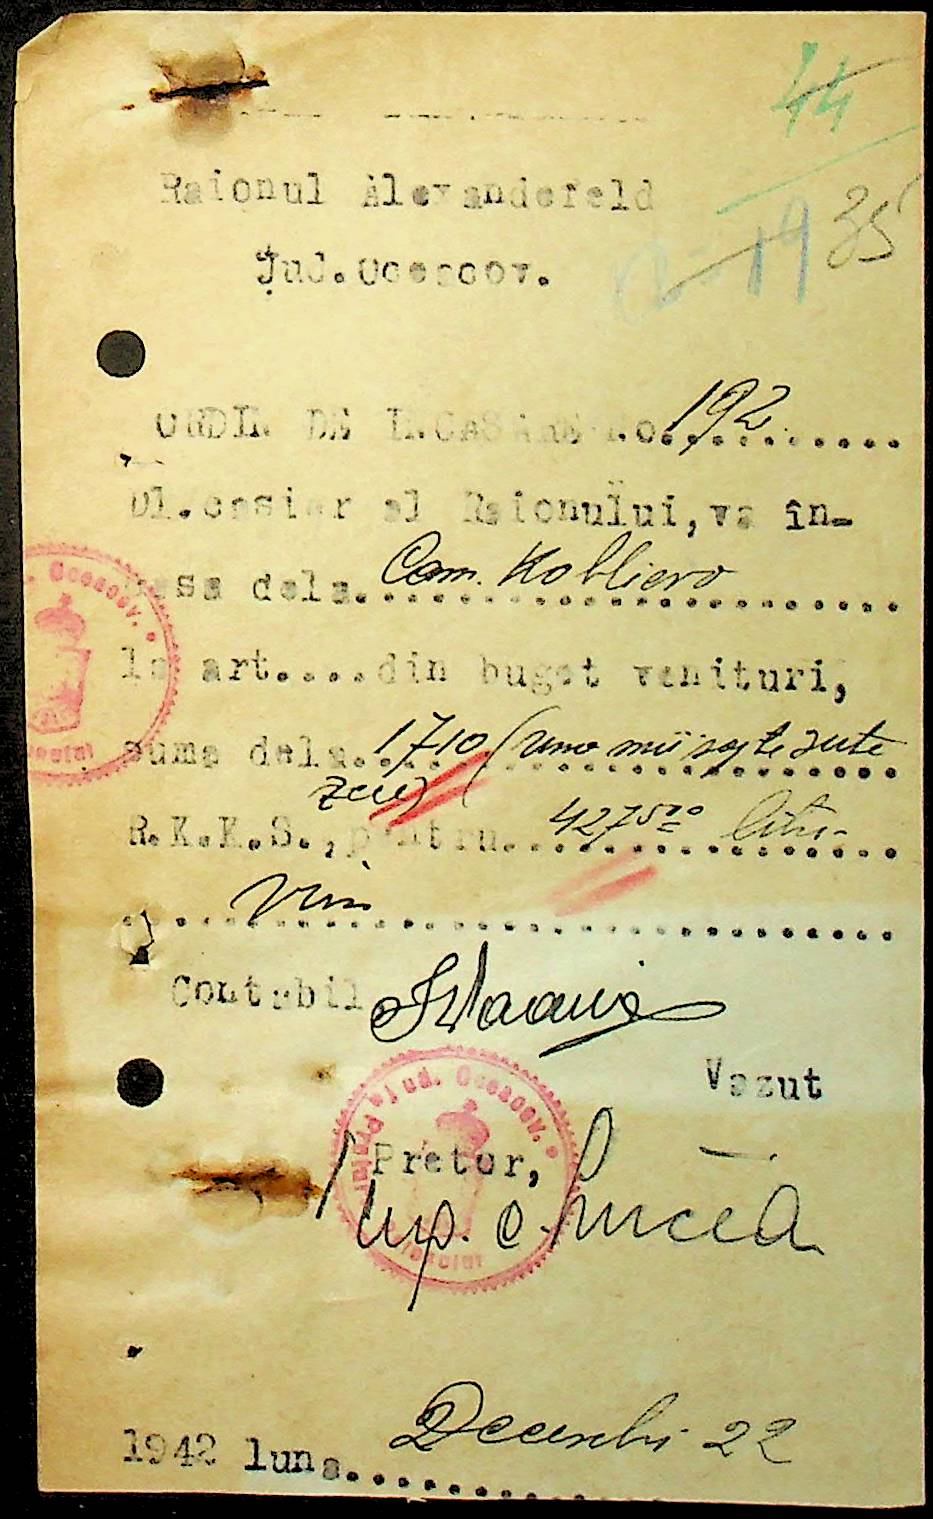 44
19 35
Raionul Alexanderfeld
Jud. Oceacov.
ORDIN DE INCASARE No. 192
Dl. casier al Raionului, va în-
casa dela. Com. Kobliero
la art.....din buget venituri,
suma dela. 1710 (una mii șapte sute
zece)
R.K.K.S., pentru. 427500 litri
vin
Contabil,
Vazut
Pretor,
1942 luna. Decembri 22
jud. Oceacov.